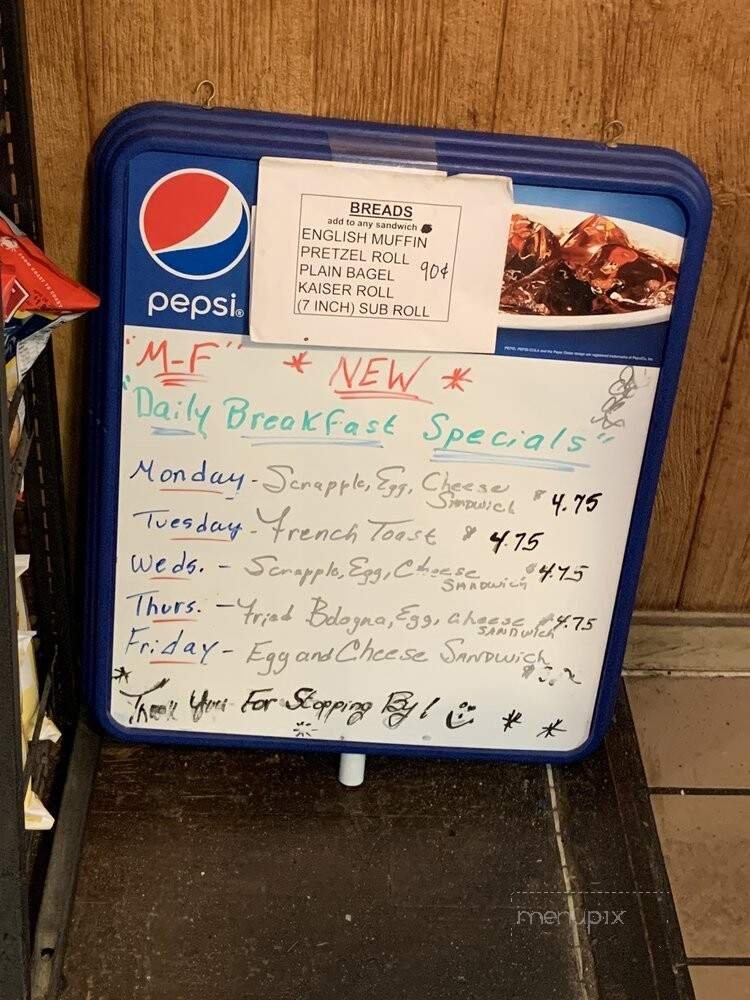 pepsi®
BREADS
add to any sandwich
ENGLISH MUFFIN
PRETZEL ROLL
PLAIN BAGEL
KAISER ROLL
(7 INCH) SUB ROLL
90¢
"M-F" * NEW *
"Daily Breakfast Specials"
Monday - Scrapple, Egg, Cheese
Sandwich $4.75
Tuesday - French Toast $4.75
Weds. - Scrapple, Egg, Cheese
Sandwich $4.75
Thurs. - Fried Bologna, Egg, cheese
Sandwich $4.75
Friday - Egg and Cheese Sandwich
* Thank You For Stopping By! * *
menupix